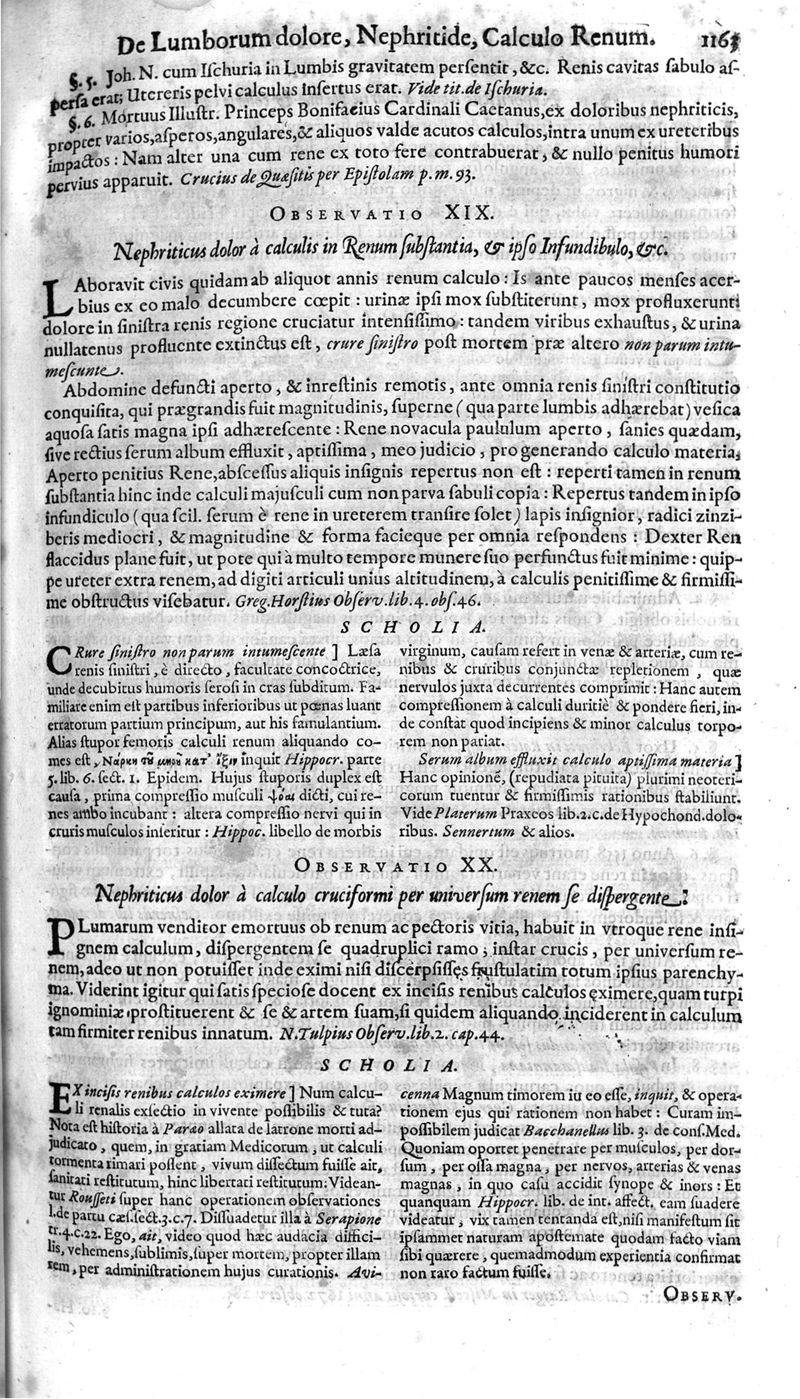 De Lumborum dolore, Nephritide, Calculo Renum. 1163
§. 5. Joh. N. cum Iſchuria in Lumbis gravitatem perſentit, &c. Renis cavitas ſabulo aſ-
perſa erat; Uretereris pelvi calculus inſertus erat. Vide tit. de Iſchuria.
§. 6. Mortuus Illuſtr. Princeps Bonifacius Cardinali Caetanus, ex doloribus nephriticis,
propter varios, aſperos, angulares, & aliquos valde acutos calculos, intra unum ex ureteribus
impactos: Nam alter una cum rene ex toto fere contrabuerat, & nullo penitus humori
pervius apparuit. Crucius de Quæſitis per Epiſtolam p. m. 93.
OBSERVATIO XIX.
Nephriticus dolor à calculis in Renum ſubſtantia, & ipſo Infundibulo, &c.
LAboravit civis quidam ab aliquot annis renum calculo: Is ante paucos menſes acer-
bius ex eo malo decumbere cœpit: urinæ ipſi mox ſubſtiterunt, mox profluxerunt
dolore in ſiniſtra renis regione cruciatur intenſiſſimo: tandem viribus exhauſtus, & urina
nullatenus profluente extinctus eſt, crure ſiniſtro poſt mortem præ altero non parum intu-
meſcunte.
Abdomine defuncti aperto, & inreſtinis remotis, ante omnia renis ſiniſtri conſtitutio
conquiſita, qui prægrandis fuit magnitudinis, ſuperne (qua parte lumbis adhærebat) veſica
aquoſa ſatis magna ipſi adhæreſcente: Rene novacula paululum aperto, ſanies quædam,
ſive rectius ſerum album effluxit, aptiſſima, meo judicio, pro generando calculo materia;
Aperto penitius Rene, abſceſſus aliquis inſignis repertus non eſt: reperti tamen in renum
ſubſtantia hinc inde calculi majuſculi cum non parva ſabuli copia: Repertus tandem in ipſo
infundiculo (qua ſcil. ſerum è rene in ureterem tranſire ſolet) lapis inſignior, radici zinzi-
beris mediocri, & magnitudine & forma facieque per omnia reſpondens: Dexter Ren
flaccidus plane fuit, ut pote qui à multo tempore munere ſuo perfunctus fuit minime: quip-
pe ureter extra renem, ad digiti articuli unius altitudinem, à calculis penitiſſime & firmiſſi-
me obſtructus viſebatur. Greg. Horſtius Obſerv. lib. 4. obſ. 46.
SCHOLIA.
CRure ſiniſtro non parum intumeſcente] Læſa
renis ſiniſtri, è directo, facultate concoctrice,
unde decubitus humoris ſeroſi in cras ſubditum. Fa-
miliare enim eſt partibus inferioribus ut pœnas luant
erratorum partium principum, aut his famulantium.
Alias ſtupor femoris calculi renum aliquando co-
mes eſt, Νάρκη τῦ μηρῦ κατ' ἴξιν inquit Hippocr. parte
5. lib. 6. ſect. 1. Epidem. Hujus ſtuporis duplex eſt
cauſa, prima compreſſio muſculi ψόαι dicti, cui re-
nes ambo incubant: altera compreſſio nervi qui in
cruris muſculos inſeritur: Hippoc. libello de morbis
virginum, cauſam refert in venæ & arteriæ, cum re-
nibus & cruribus conjunctæ repletionem, quæ
nervulos juxta decurrentes comprimit: Hanc autem
compreſſionem à calculi duritiè & pondere fieri, in-
de conſtat quod incipiens & minor calculus torpo-
rem non pariat.
Serum album effluxit calculo aptiſſima materia]
Hanc opinionē, (repudiata pituita) plurimi neoteri-
corum tuentur & firmiſſimis rationibus ſtabiliunt.
Vide Platerum Praxeos lib. 2. c. de Hypochond. dolo-
ribus. Sennertum & alios.
OBSERVATIO XX.
Nephriticus dolor à calculo cruciformi per univerſum renem ſe diſpergente.
PLumarum venditor emortuus ob renum ac pectoris vitia, habuit in vtroque rene inſi-
gnem calculum, diſpergentem ſe quadruplici ramo; inſtar crucis, per univerſum re-
nem, adeo ut non potuiſſet inde eximi niſi diſcerpſiſſes fruſtulatim totum ipſius parenchy-
ma. Viderint igitur qui ſatis ſpecioſe docent ex inciſis renibus calculos eximere, quam turpi
ignominiæ proſtituerent & ſe & artem ſuam, ſi quidem aliquando inciderent in calculum
tam firmiter renibus innatum. N. Tulpius Obſerv. lib. 2. cap. 44.
SCHOLIA.
EX inciſis renibus calculos eximere] Num calcu-
li renalis exſectio in vivente poſſibilis & tuta?
Nota eſt hiſtoria à Paræo allata de latrone morti ad-
judicato, quem, in gratiam Medicorum, ut calculi
tormenta rimari poſſent, vivum diſſectum fuiſſe ait,
ſanitati reſtitutum, hinc libertati reſtitutum: Videan-
tur Rouſſeti ſuper hanc operationem obſervationes
l. de partu cæſ. ſect. 3. c. 7. Diſſuadetur illa à Serapione
tr. 4. c. 22. Ego, ait, video quod hæc audacia diffici-
lis, vehemens, ſublimis, ſuper mortem, propter illam
rem, per adminiſtrationem hujus curationis. Avi-
cenna Magnum timorem iu eo eſſe, inquit, & opera-
tionem ejus qui rationem non habet: Curam im-
poſſibilem judicat Bacchanellus lib. 3. de conſ. Med.
Quoniam oportet penetrare per muſculos, per dor-
ſum, per oſſa magna, per nervos, arterias & venas
magnas, in quo caſu accidit ſynope & mors: Et
quanquam Hippocr. lib. de int. affect. eam ſuadere
videatur, vix tamen tentanda eſt, niſi manifeſtum ſit
ipſammet naturam apoſtemate quodam facto viam
ſibi quærere, quemadmodum experientia confirmat
non raro factum fuiſſe.
OBSERV.